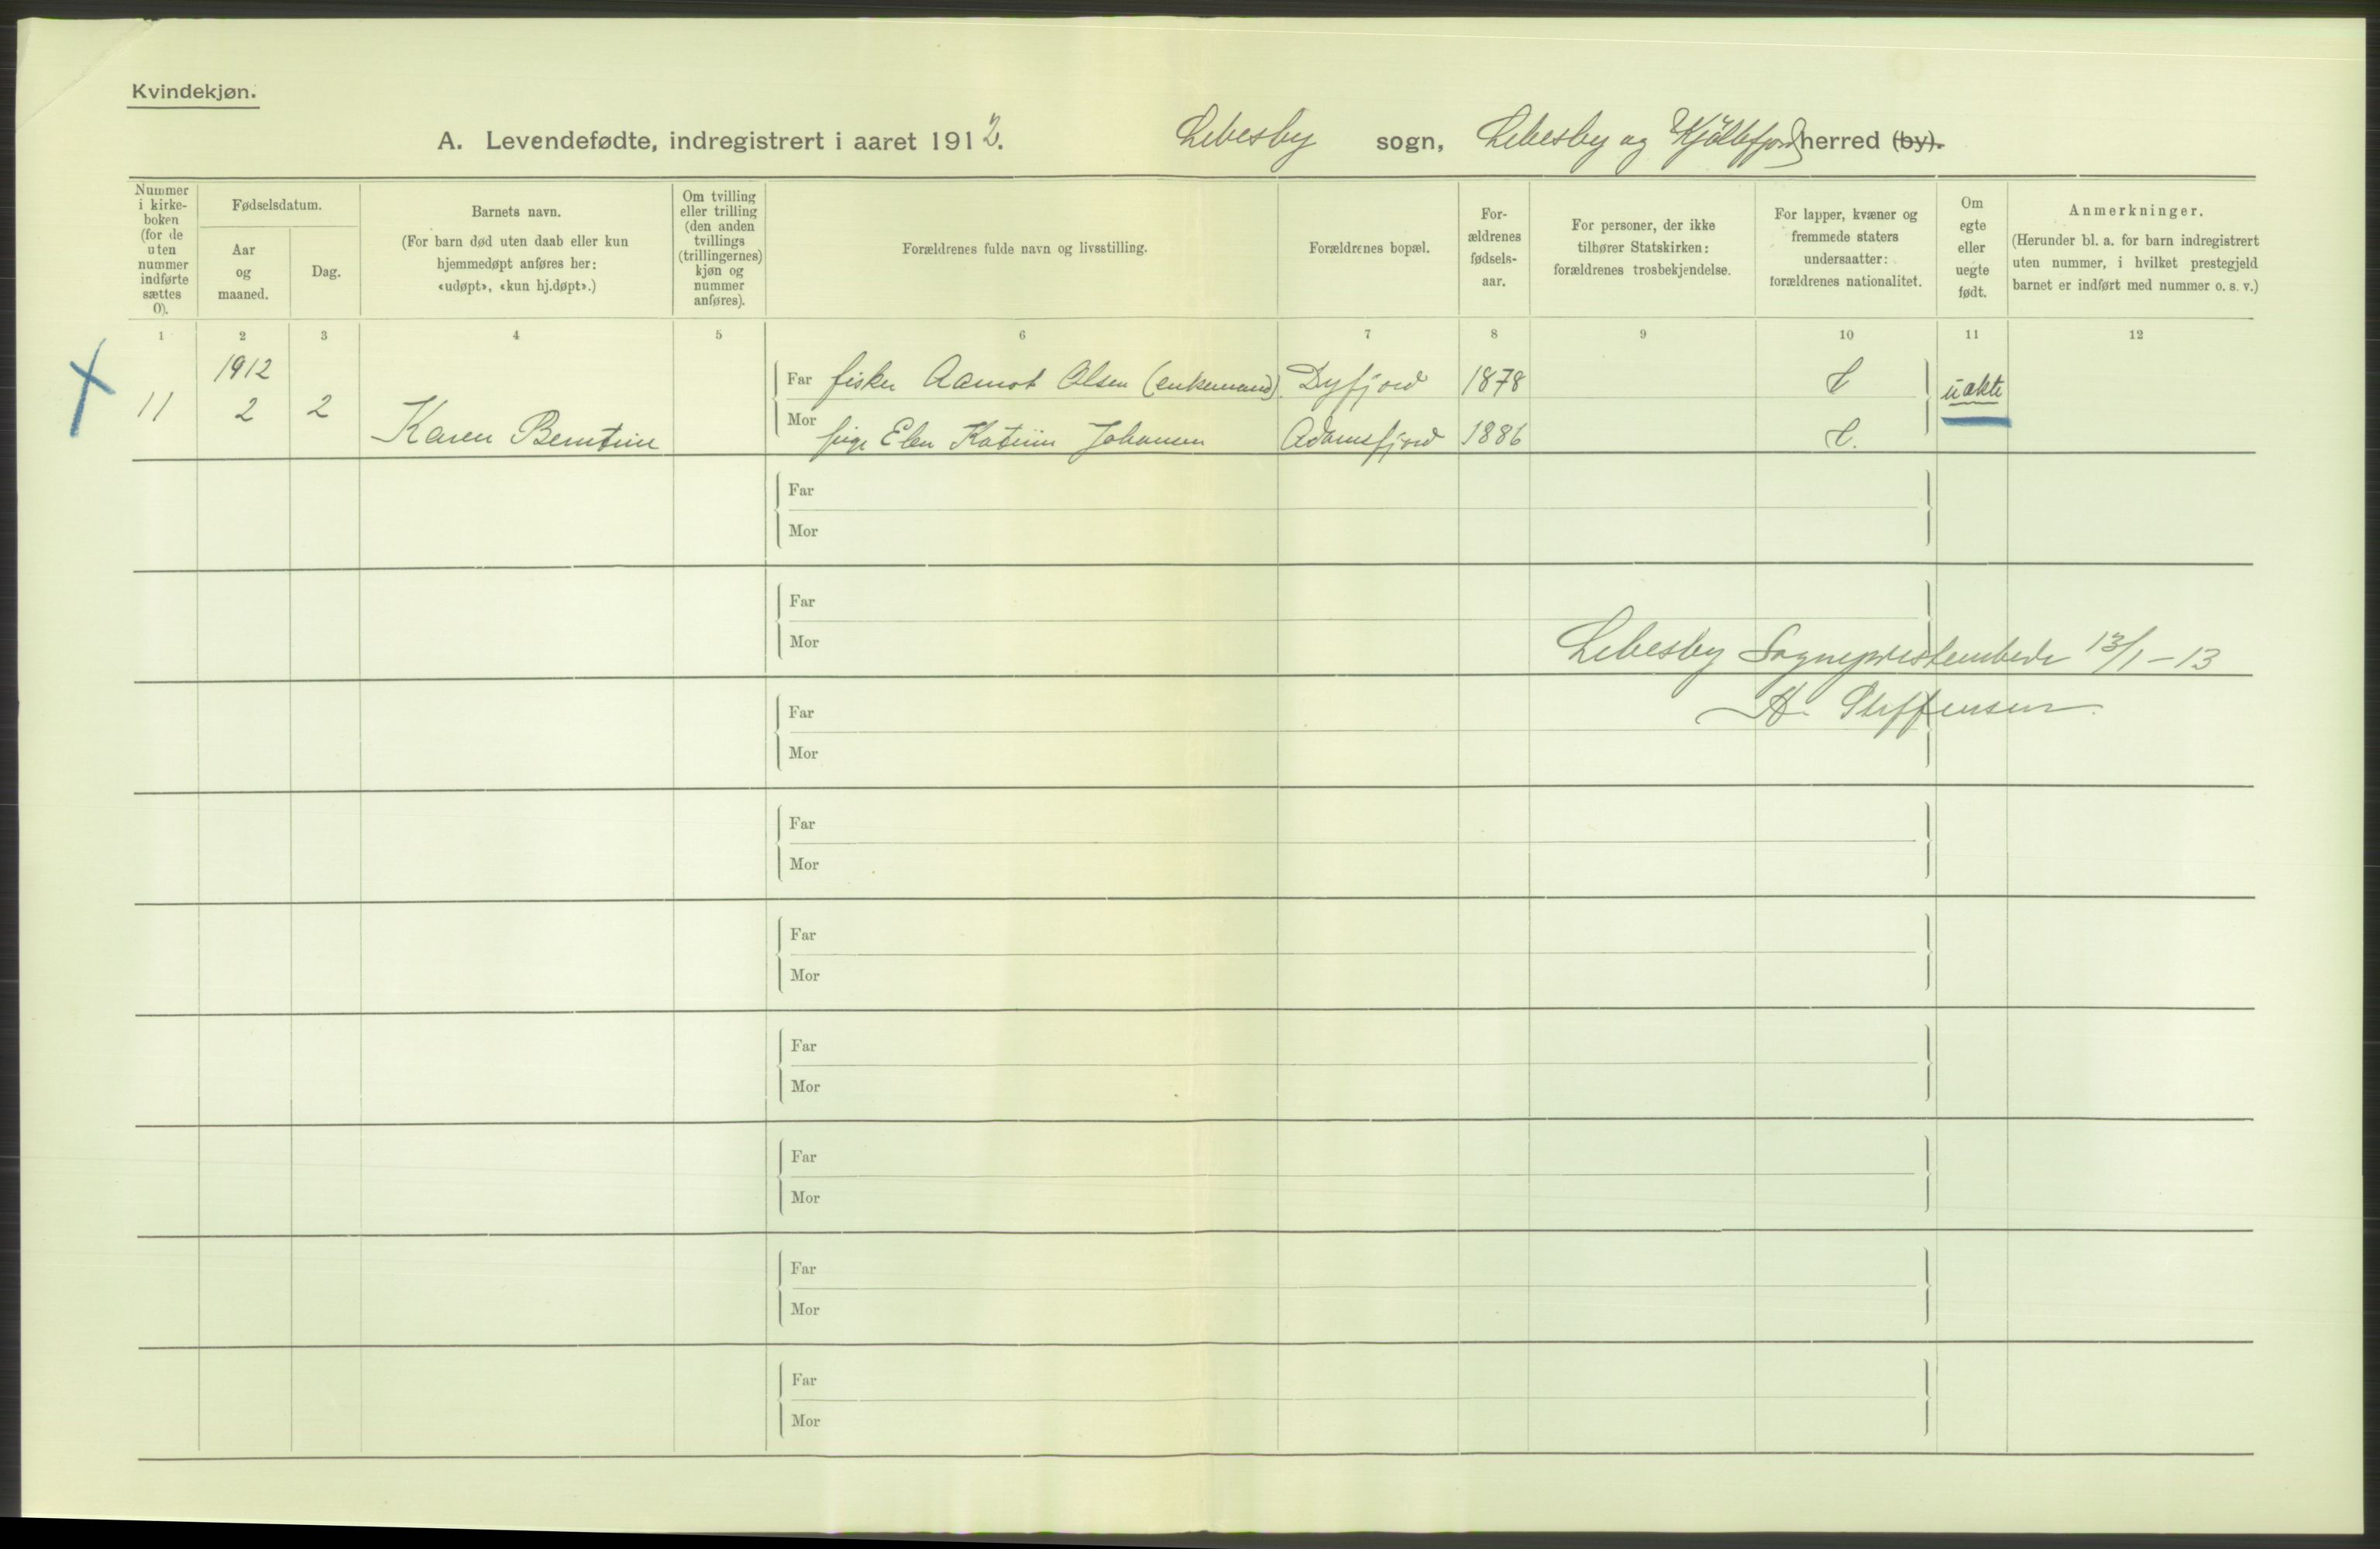 Kvindekjøn.
A. Levendefødte, indregistrert i aaret 1912. Lebesby sogn, Lebesby og Kjøllefjord herred (by).
Nummer i kirke-boken (for de uten nummer indførte sættes 0).
Fødselsdatum.
Aar og maaned.
Dag.
Barnets navn.
(For barn død uten daab eller kun hjemmedøpt anføres her: «udøpt», «kun hj.døpt».)
Om tvilling eller trilling (den anden tvillings (trillingernes) kjøn og nummer anføres).
Forældrenes fulde navn og livsstilling.
Forældrenes bopæl.
For-ældrenes fødsels-aar.
For personer, der ikke tilhører Statskirken: forældrenes trosbekjendelse.
For lapper, kvæner og fremmede staters undersaatter: forældrenes nationalitet.
Om egte eller uegte født.
Anmerkninger.
(Herunder bl. a. for barn indregistrert uten nummer, i hvilket prestegjeld barnet er indført med nummer o. s. v.)
1 2 3 4 5 6 7 8 9 10 11 12
1912
Far fisker Aamot Olsen (enkemand) Dyfjord 1878
11 2 2 Karen Berntine uekte
Mor pige Elen Katrine Johansen Adamsfjord 1886
Far
Mor
Far
Mor
Lebesby Sogneprestembede 13/1-13
A. Steffensen
Far
Mor
Far
Mor
Far
Mor
Far
Mor
Far
Mor
Far
Mor
Far
Mor